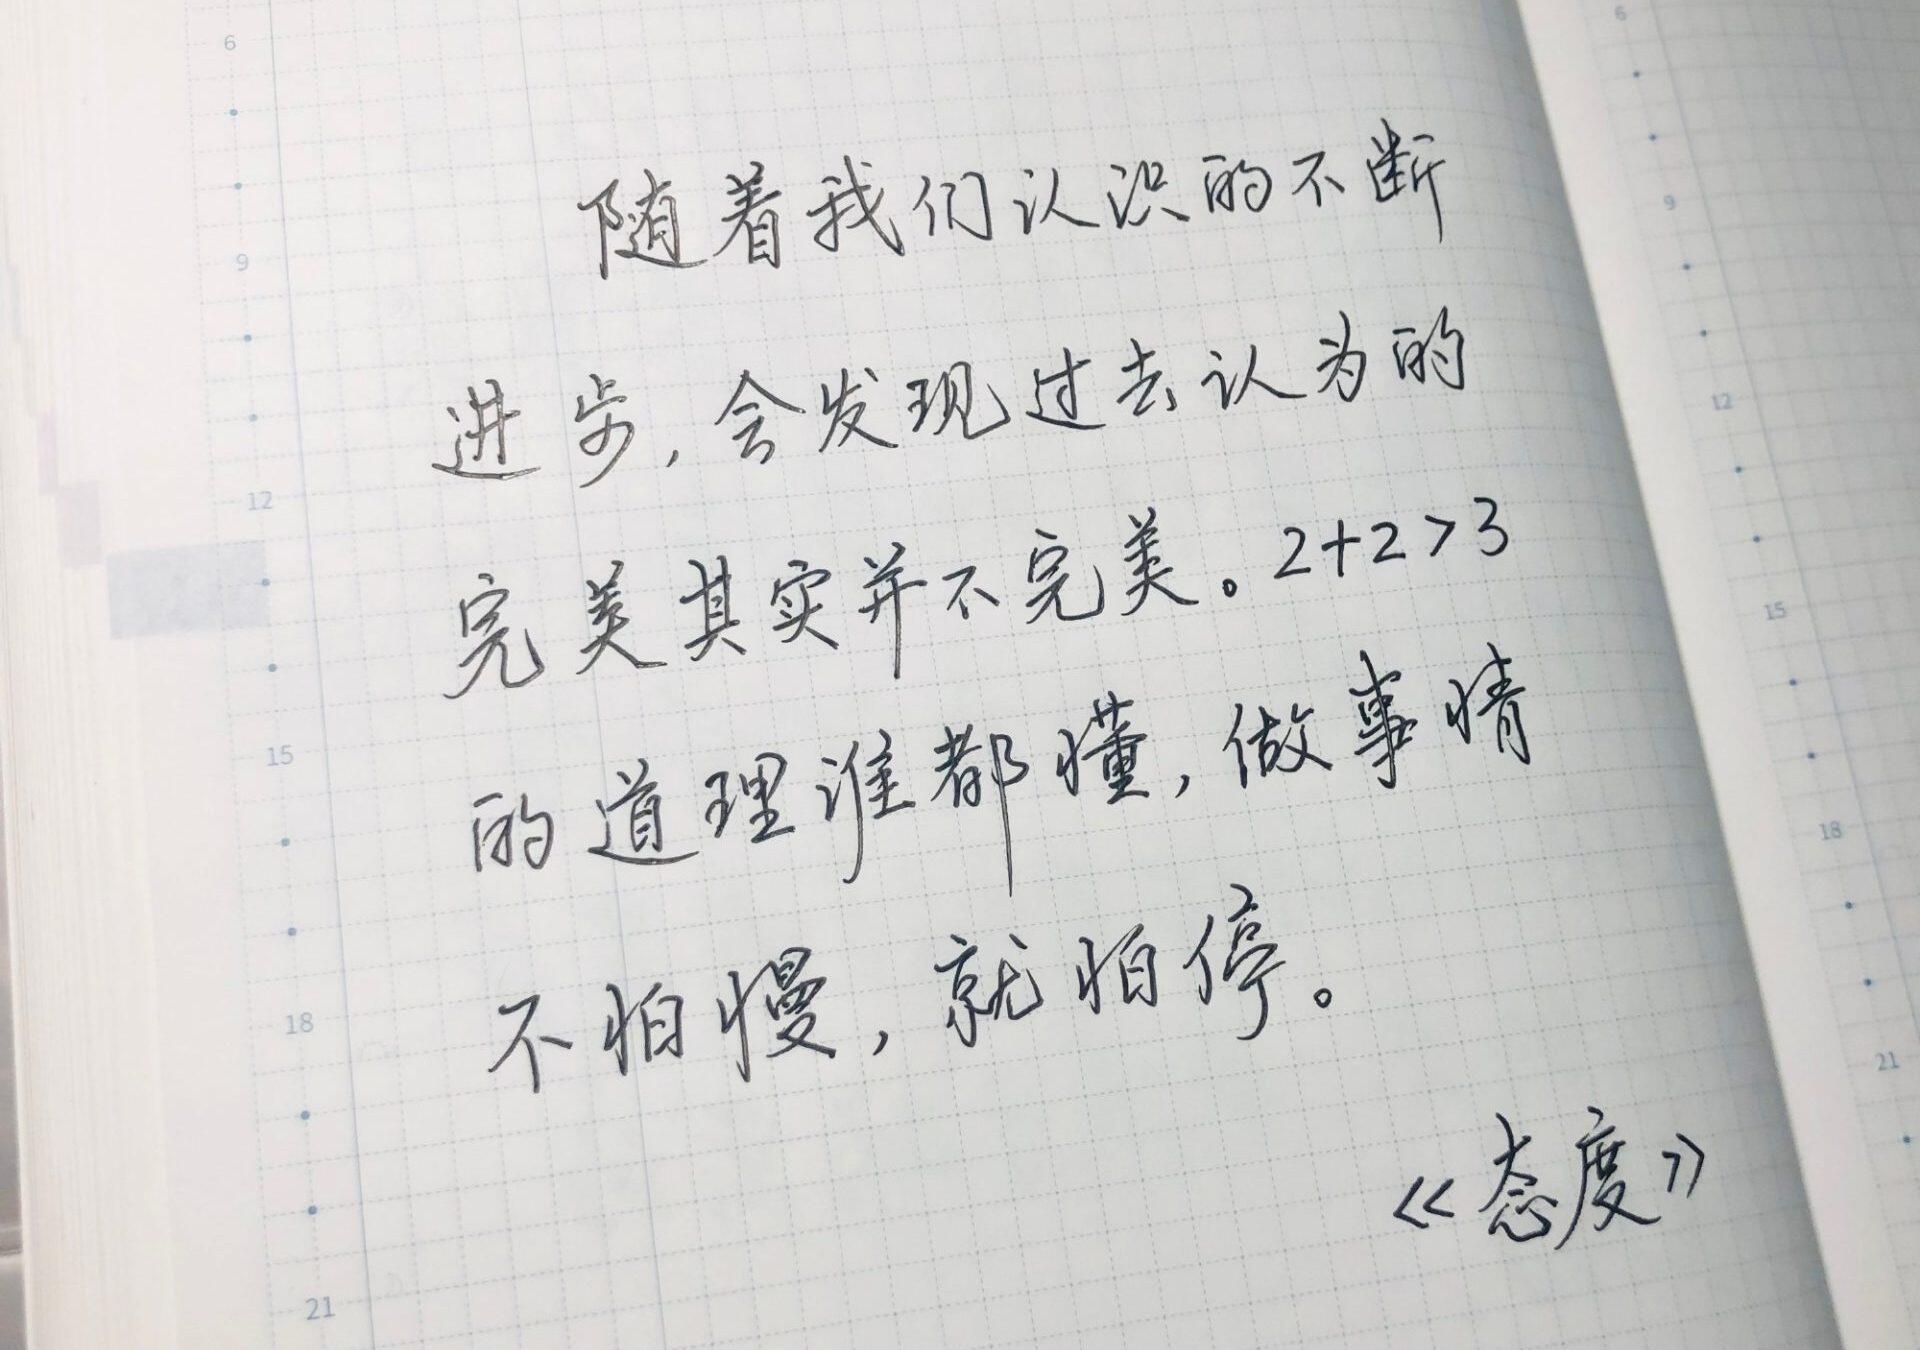 随着我们认识的不断
进步,会发现过去认为的
完美其实并不完美。2+2>3
的道理谁都懂,做事情
不怕慢,就怕停。
《态度》
6
9
12
15
18
21
6
9
12
15
18
21